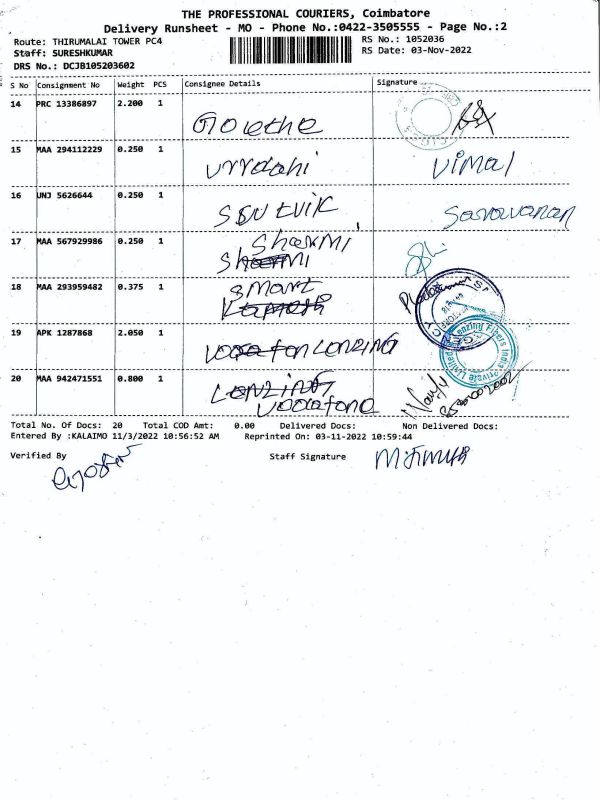 THE PROFESSIONAL COURIERS, Coimbatore
Delivery Runsheet - MO - Phone No.:0422-3505555 - Page No.:2
Route: THIRUMALAI TOWER PC4
RS No.: 1052036
Staff: SURESHKUMAR
RS Date: 03-Nov-2022
DRS No.: DCJB105203602
S No Consignment No Weight PCS Consignee Details Signature
14 PRC 13386897 2.200 1
Goethe
15 MAA 294112229 0.250 1
Vimal
16 UNJ 5626644 0.250 1
Saravanan
17 MAA 567929986 0.250 1
Sharmi
Sharmi
18 MAA 293959482 0.375 1
smart
19 APK 1287868 2.050 1
Lenzing Fibers India Private Limited
LENZING
20 MAA 942471551 0.800 1
LENZING
vodafone
Total No. Of Docs: 20 Total COD Amt: 0.00 Delivered Docs: Non Delivered Docs:
Entered By :KALAIMO 11/3/2022 10:56:52 AM Reprinted On: 03-11-2022 10:59:44
Verified By Staff Signature